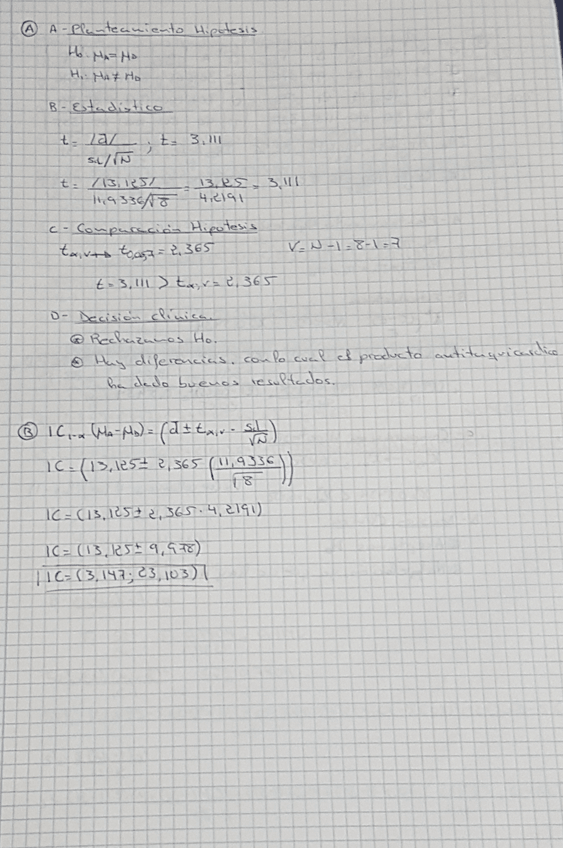 Ⓐ A - Planteamiento Hipotesis
H₀: μA = μD
H₁: μA ≠ μD
B - Estadistico
t = /d̄/ / sd/√N ; t = 3,111
t = /13,125/ / 11,9336/√8 = 13,125 / 4,2191 = 3,111
C - Comparación Hipotesis
tα,v → t0,05,7 = 2,365 V = N-1 = 8-1 = 7
t = 3,111 > tα,v = 2,365
D - Decisión clínica.
Rechazamos H₀.
Hay diferencias. con lo cual el producto antitaquicardico
ha dado buenos resultados.
Ⓑ IC₁₋α (μA - μD) = (d̄ ± tα,v · sd/√N)
IC = (13,125 ± 2,365 (11,9336/√8))
IC = (13,125 ± 2,365 · 4,2191)
IC = (13,125 ± 9,978)
IC = (3,147; 23,103)